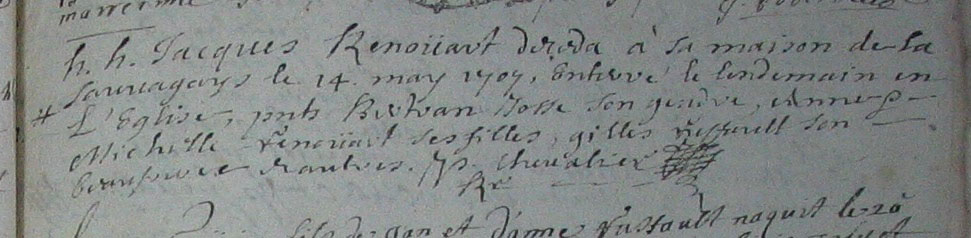 h. h. Jacques Renoüart deceda à sa maison de la
sauuagays le 14. may 1707, Enterré le lendemain en
L'Eglise, pnts Bertran Josse son gendre, anne &
Michelle renoüart ses filles, gilles son
beaufrere & autres. Chevalier
Rr
fils de et d'anne naquit le 20